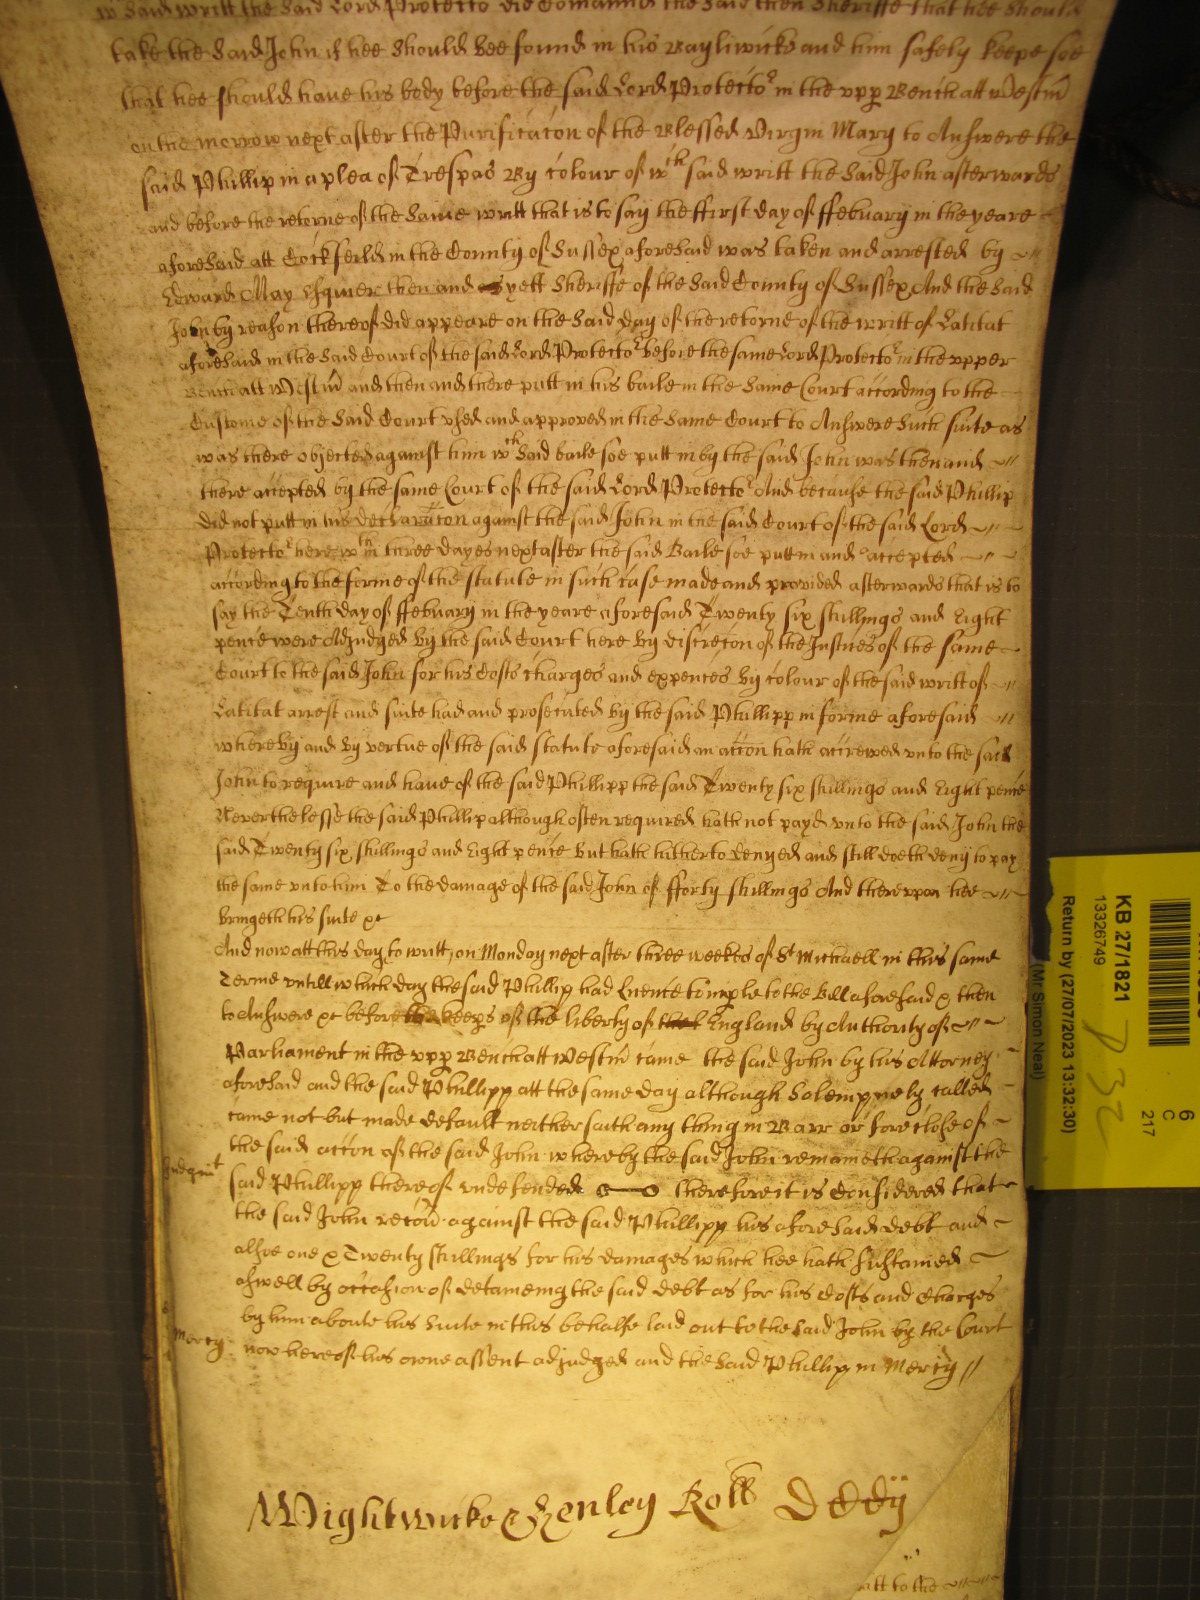 wch said writt the said Lord Protector did Comaund the said then Sheriffe that hee should
take the said John if hee should bee found in his Bayliwicke and him safely keepe soe
that hee should have his body before the said Lord Protector in the upp Bench att Westm
on the morrow next after the Purificacon of the Blessed Virgin Mary to Answere the
said Phillip in a plea of Trespas By colour of wch said writt the said John afterwards
and before the retorne of the same writt that is to say the ffirst day of ffebuary in the yeare
aforesaid att Cockfeild in the County of Sussex aforesaid was taken and arrested by
Edward May Esquier then and yett Sheriffe of the said County of Sussex And the said
John by reason thereof did appeare on the said day of the retorne of the writt of Latitat
aforesaid in the said Court of the said Lord Protector before the same Lord Protector in the upper
Bench att Westm and then and there putt in his baile in the same Court according to the
Custome of the said Court used and approved in the same Court to Answere such suite as
was there objected against him wch said baile soe putt in by the said John was then and
there accepted by the same Court of the said Lord Protector And because the said Phillip
did not putt in his declaracon against the said John in the said Court of the said Lord
Protector here wthin three dayes next after the said Baile soe putt in and accepted
according to the forme of the statute in such case made and provided afterwards that is to
say the Tenth day of ffebuary in the yeare aforesaid Twenty six shillings and Eight
pence were Adjudged by the said Court here by discrecon of the Justices of the same
Court to the said John for his Costs charges and expences by colour of the said writt of
Latitat arrest and suite had and prosecuted by the said Phillipp in forme aforesaid
whereby and by vertue of the said statute aforesaid an accon hath accrewed unto the said
John to require and have of the said Phillipp the said Twenty six shillings and Eight pence
Neverthelesse the said Phillip although often required hath not payd unto the said John the
said Twenty six shillings and Eight pence But hath hitherto denyed and still doeth deny to pay
the same unto him To the damage of the said John of fforty shillings And thereupon hee
bringeth his suite &c
And now att this day to witt, on Monday next after three weekes of St Michaell in this same
Terme untill which day the said Phillip had Lycence to imple to the Bill aforesaid & then
to Answere &c before the keeps of the liberty of England by Authority of
Parliament in the upp Bench att Westm came the said John by his Attorney
aforesaid and the said Phillipp att the same day although solempnely called
came not but made default neither saith any thing in Barr or foreclose of
the said accon of the said John whereby the said John remaineth against the
Judgmt
said Phillipp thereof undefended therefore it is Considered that
the said John recov against the said Phillipp his aforesaid debt and
alsoe one & Twenty shillings for his damages which hee hath sustained
aswell by occasion of detaineing the said debt as for his Costs and Charges
by him aboute his suite in this behalfe laid out to the said John by the Court
Mercy
now here of his owne assent adjudged and the said Phillip in Mercy
Wightwicke & Henley Roll
att to the
KB 27/1821
13326749
Return by (27/07/2023 13:32:30)
(Mr Simon Neal)
6
C
217